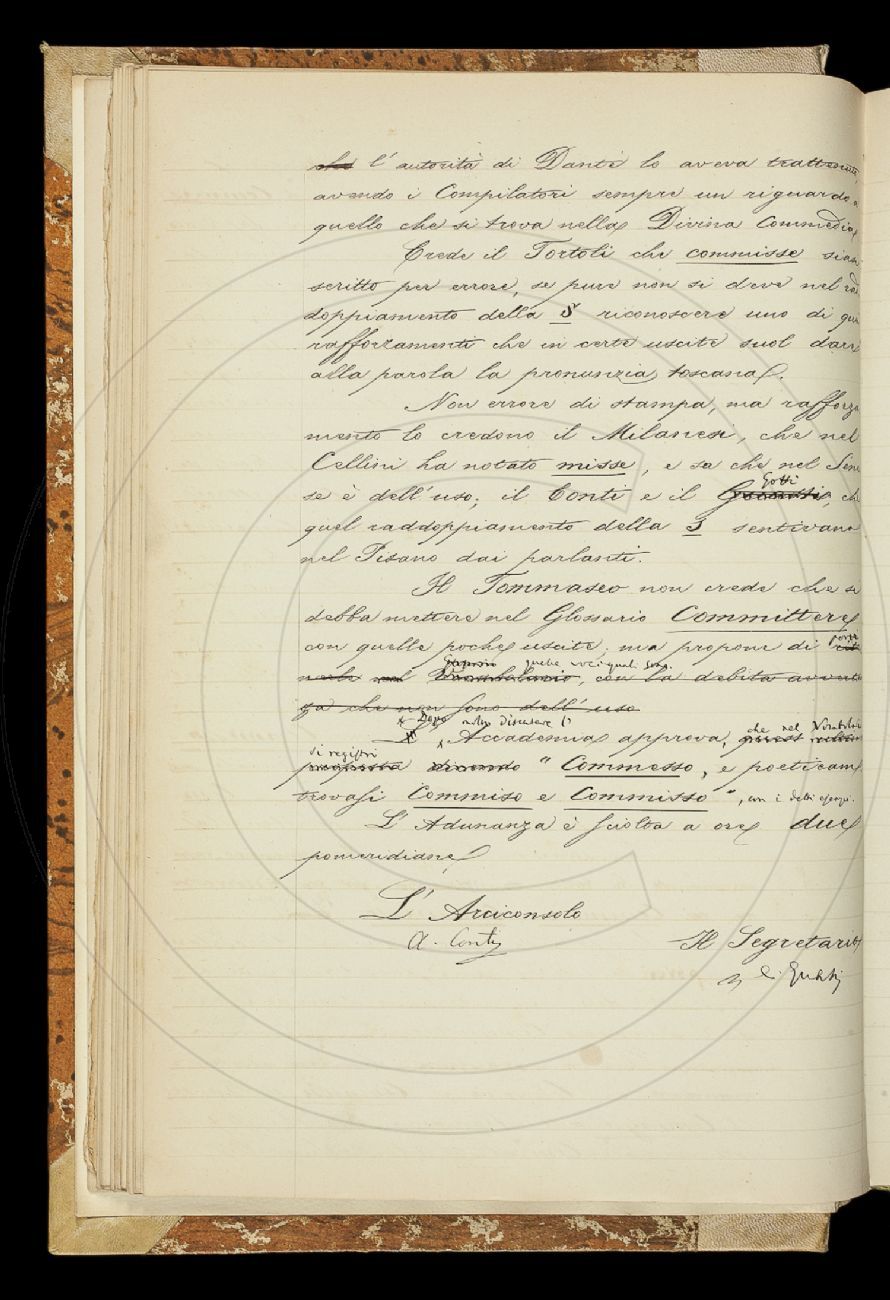 che l' autorità di Dante lo aveva trattenuto,
avendo i Compilatori sempre un riguardo a
quello che si trova nella Divina Commedia
Crede il Tortoli che commisse sian
scritto per errore, se pure non si deve nel rad
doppiamento della S riconoscere uno di que
rafforzamenti che in certe uscite suol dare
alla parola la pronunzia toscana.
Non errore di stampa, ma rafforza
mento lo credono il Milanesi, che nel
Cellini ha notato misse, e sa che nel Sene
Gotti
se è dell' uso; il Conti e il che
quel raddoppiamento della S sentivano
nel Pisano dai parlanti.
Il Tommaseo non crede che si
debba mettere nel Glossario Committere
con quelle poche uscite; ma propone di
nel Vocabolario, con la debita avverten
za che non sono dell' uso
Dopo molto discutere l'
Accademia approva, che nel Vocabolario
si registri
proposta dicendo " Commesso, e poeticam.
trovasi Commiso e Commisso ", con i detti esempi.
L' Adunanza è sciolta a ore due
pomeridiane
L' Arciconsolo
A. Conti
Il Segretario